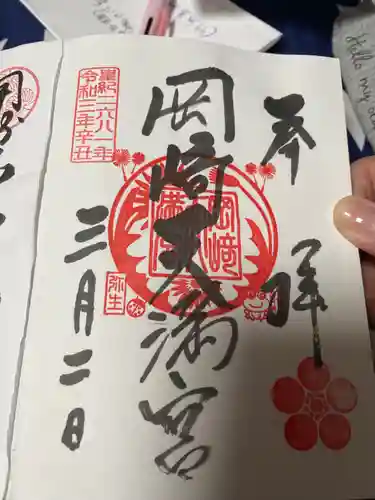 奉拝
岡崎天満宮
皇紀二六八一年
令和三年辛丑
三月二日
弥生
Hello my